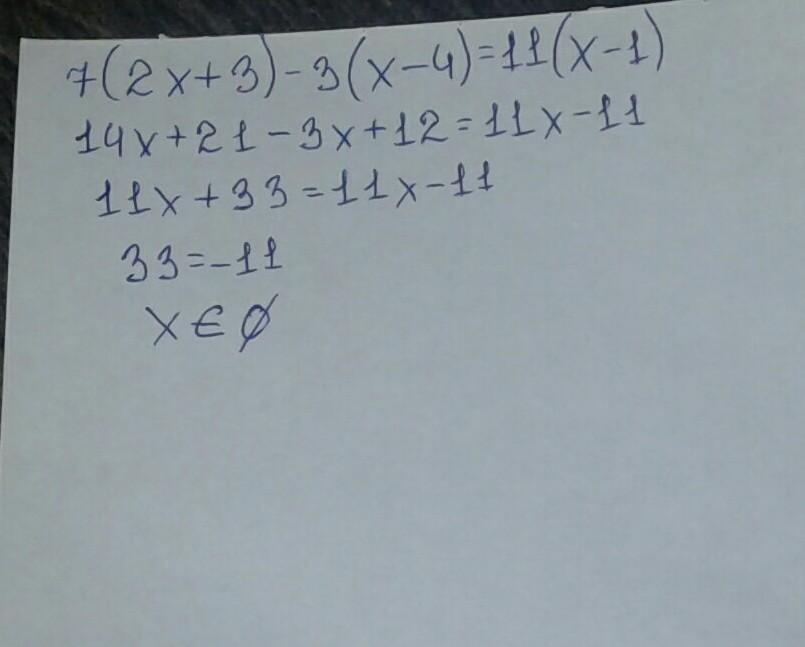 7(2x+3)-3(x-4)=11(x-1)
14x+21-3x+12=11x-11
11x+33=11x-11
33=-11
x∈∅